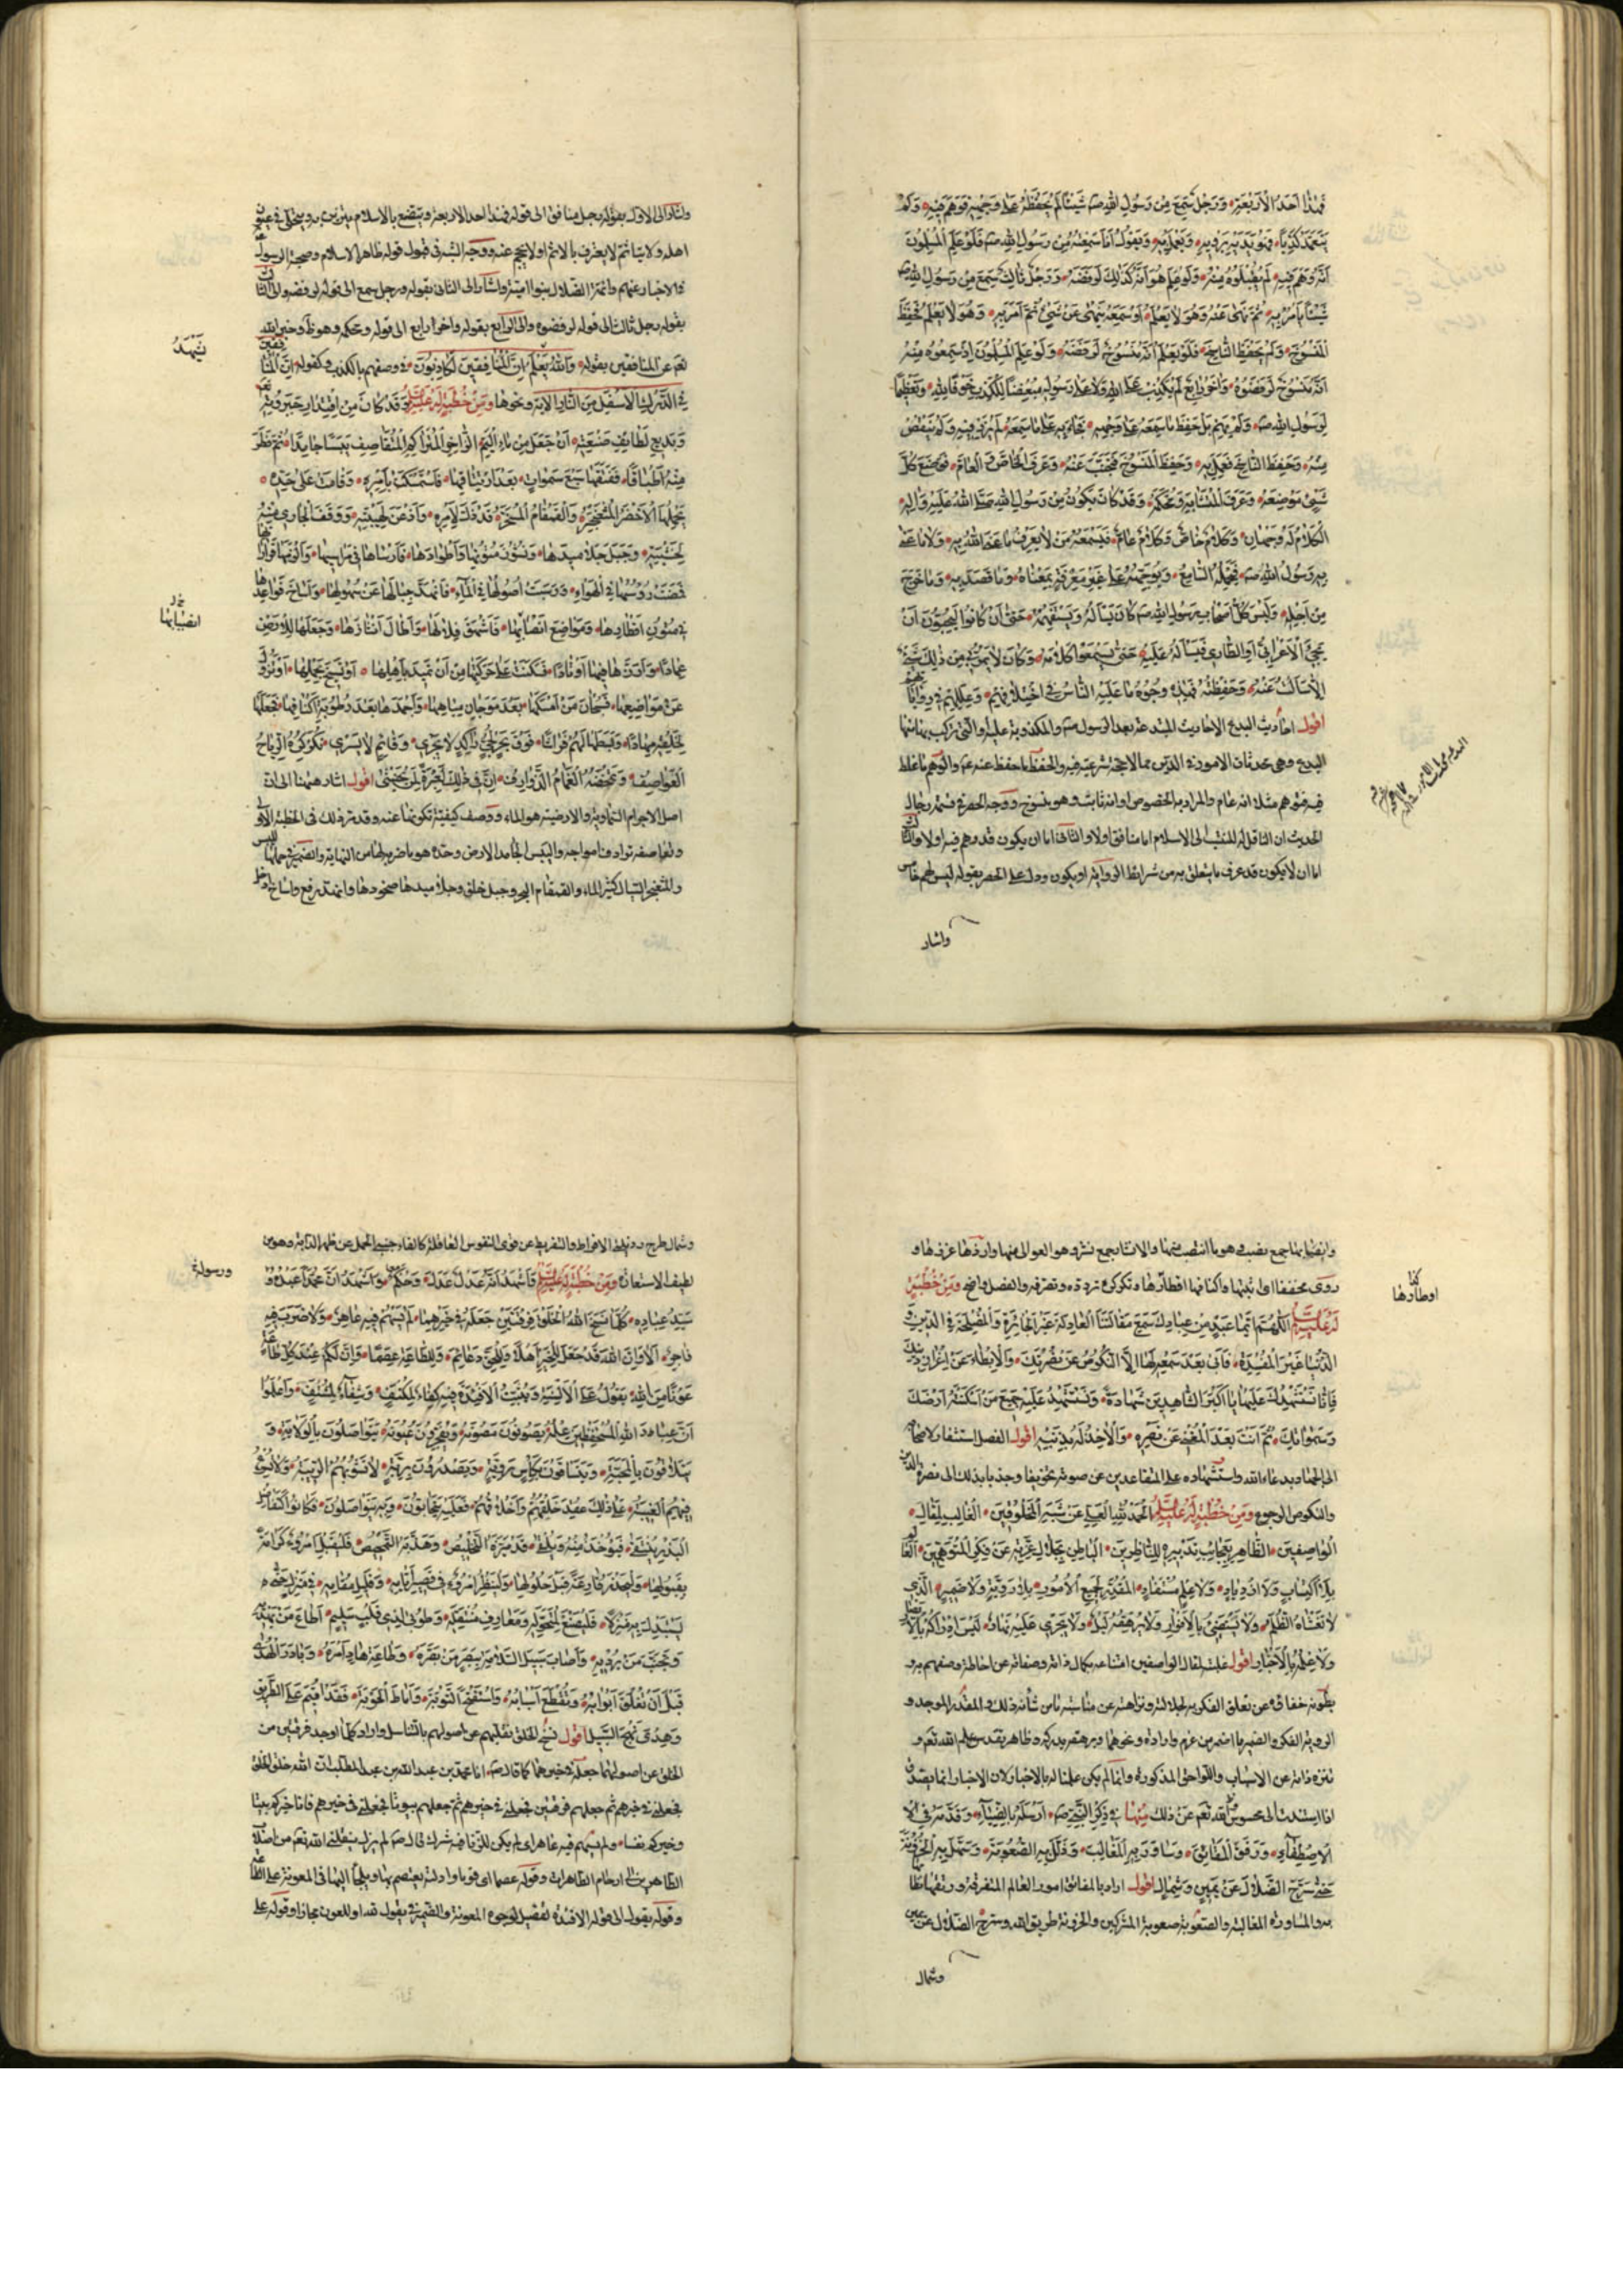 فهذا احد الاربعة ورجل سمع من رسول الله صـ شيئا لم يحفظه على وجهه فوهم فيه ولم
يتعمد كذبا فهو في يديه يرويه ويعمل به ويقول انا سمعته من رسول الله صـ فلو علم المسلمون
انه وهم فيه لم يقبلوه منه ولو علم هو انه كذلك لرفضه ورجل ثالث سمع من رسول الله صـ
شيئا يأمر به ثم نهى عنه وهو لا يعلم او سمعه ينهى عن شيء ثم امر به وهو لا يعلم فحفظ
المنسوخ ولم يحفظ الناسخ فلو يعلم انه منسوخ لرفضه ولو علم المسلمون اذ سمعوه منه
انه منسوخ لرفضوه وآخر رابع لم يكذب على الله ولا على رسوله مبغض للكذب خوفا لله وتعظيما
لرسول الله صـ ولم يهم بل حفظ ما سمعه على وجهه فجاء به على ما سمعه لم يزد فيه ولم ينقص
منه وحفظ الناسخ فعمل به وحفظ المنسوخ فجنب عنه وعرف الخاص والعام فوضع كل
شيء موضعه وعرف المتشابه ومحكمه وقد كان يكون من رسول الله صلى الله عليه وآله
الكلام له وجهان وكلام خاص وكلام عام فيسمعه من لا يعرف ما عنى الله به ولا ما عنى
به رسول الله صـ فيحمله السامع ويوجهه على غير معرفة بمعناه وما قصد به وما خرج
من اجله وليس كل اصحاب رسول الله صـ كان يسأله ويستفهمه حتى ان كانوا ليحبون ان
يجيء الاعرابي او الطاري فيسأله عليه حتى يسمعوا كلامه وكان لا يمر بي من ذلك شيء
الا سألت عنه وحفظته فهذه وجوه ما عليه الناس في اختلافهم وعللهم في رواياتهم
اقول احاديث البدع الاحاديث المبتدعة بعد الرسول صـ والمكذوبة عليه والتي تركب بناءها
البدع وهي محدثات الامور في الدين مما لا حجة شرعية فيه والحفظ ما حفظ عنه عم والوهم ما غلط
فيه فتوهم مثلا انه عام والمراد به الخصوص او انه ثابت وهو منسوخ ووجه الحصر في قسمة رجال
الحديث ان الناقل له المنتسب الى الاسلام اما منافق اولا والثاني اما ان يكون قد وهم فيه اولا والثالث
اما ان لا يكون قد عرف ما يتعلق به من شرائط الرواية او يكون ودل على الحصر بقوله ليس لهم خامس
واشار
واشار الى الاول بقوله رجل منافق الى قوله فهذا احد الاربعة
اهله ولا يتأثم لا يعترف بالاثم او لا يحرج عنه ووجه الشبه في قبول قوله ظاهر الاسلام وصحبة الرسول
والاخبار عنهم وائمة الضلال بنو امية واشار الى الثاني بقوله ورجل سمع الى قوله لرفضه والى الثالث
بقوله رجل ثالث الى قوله لرفضوه والى الرابع بقوله وآخر رابع الى قوله ومحكمه وهو ظ وخبر الله
تعم عن المنافقين بقوله والله يعلم ان المنافقين لكاذبون في وصفهم بالكذب وكقوله ان المنافقين
في الدرك الاسفل من النار الآية ونحوها ومن خطبة له عليه السلم وقد كان من اقتدار جبروته
وبديع لطايف صنعته ان جعل من ماء اليم الزاخر المتراكم المتقاصف يبسا جامدا ثم فطر
منه اطباقا ففتقها سبع سموات بعد ارتتاقها فاستمسكت بامره وقامت على حده
يحملها الاخضر المثعنجر والقمقام المسخر قد ذل لامره واذعن لهيبته ووقف الجاري منه
لخشيته وجبل جلاميدها ونشوز متونها واطوادها فارساها في مراسيها والزمها قرارتها
فمضت رؤسها في الهواء ورست اصولها في الماء فانهد جبالها عن سهولها واساخ قواعدها
في متون اقطارها ومواضع انصابها فاشهق قلالها واطال انشازها وجعلها للارض
عمادا وارزها فيها اوتادا فسكنت على حركتها من ان تميد باهلها او تسيخ بحملها او تزول
عن مواضعها فسبحان من امسكها بعد موجان مياهها واجمدها بعد رطوبة اكنافها فجعلها
لخلقه مهادا وبسطها لهم فراشا فوق بحر لجي راكد لا يجري وقائم لا يسري تكركره الرياح
العواصف وتمخضه الغمام الذوارف ان في ذلك لعبرة لمن يخشى اقول اشار ههنا الى ان
اصل الاجرام السماوية والارضية هو الماء ووصف كيفية تكونها عنه وقد مر ذلك في الخطبة الاولى
وتقاصفه ترادف امواجه واليبس الجامد الارض وحده هو ما ضرب لها من النهاية والضمير في حملها لليبس
والمثعنجر السيال كثير الماء والقمقام البحر وجبل خلق وجلاميدها صخورها وانهد رفع واساخ ادخل
يشهد
انصبابها
وانصابها جمع نصب وهو ما انتصب منها والانشاز جمع نشز وهو العوالي منها وارزها غرزها و
روي مخففا اي ثبتها واكنافها اقطارها وتكركره تردده وتصرفه والفصل واضح ومن خطبة
له عليه السلم اللهم ايما عبد من عبادك سمع مقالتنا العادلة غير الجائرة والمصلحة في الدين و
الدنيا غير المفسدة فابى بعد سمعه لها الا النكوص عن نصرتك والابطاء عن اعزاز دينك
فانا نستشهدك عليه يا اكبر الشاهدين شهادة ونستشهد عليه جميع من اسكنته ارضك
وسمواتك ثم انت بعد المغني عن نصره والآخذ له بذنبه اقول الفصل استنفار لاصحابه
الى الجهاد بدعاء الله واستشهاده على المتقاعدين عن صوته تخويفا وجذبا بذلك الى نصرة الدين
والنكوص الرجوع ومن خطبة له عليه السلم الحمد لله العلي عن شبه المخلوقين الغالب لمقال
الواصفين الظاهر بعجائب تدبيره للناظرين الباطن بجلال عزته عن فكر المتوهمين العالم
بلا اكتساب ولا ازدياد ولا علم مستفاد المقدر لجميع الامور بلا روية ولا ضمير الذي
لا تغشاه الظلم ولا يستضيء بالانوار ولا يرهقه ليل ولا يجري عليه نهار ليس ادراكه بالابصار
ولا علمه بالاخبار اقول غلبته لمقال الواصفين امتناعه بكمال ذاته وصفاته عن احاطة وصفهم به و
بطونه خفاؤه عن تعلق الفكر به لجلالته ونزاهته عن مناسبة ما من شأنه ذلك والمقدر الموجد و
الروية الفكر والضمير ما اضمر من عزم وارادة ونحوهما ويرهقه يدركه وظاهر تقدس علم الله تعم و
تنزه ذاته عن الاسباب واللواحق المذكورة وانما لم يكن علمنا له بالاخبار لان الاخبار انما يصدق
اذا استندت الى محسوس تعم عن ذلك منها في ذكر النبي صـ ارسله بالضياء وقدمه في
الاصطفاء ورتق به المفاتق وساور به المغالب وذلل به الصعوبة وسهل به الحزونة
حتى سرح الضلال عن يمين وشمال اقول اراد بالمفاتق امور العالم المتفرقة ورتقها نظامها
به والمساورة المغالبة والصعوبة صعوبة المشركين والحزونة طريق الله وسرح الضلال عن يمين
وشمال
اوطارها
وشمال طرح رذيلتي الافراط والتفريط عن قوى النفوس العاقلة كالقاء جنبي الحمل عن ظهر الدابة وهو من
لطيف الاستعارة ومن خطبة له عليه السلم فاشهد انه عدل عدل وحكم واشهد ان محمدا عبده و
سيد عباده كلما نسخ الله الخلق فرقتين جعله في خيرهما لم يسهم فيه عاهر ولا ضرب فيه
فاجر الا وان الله قد جعل للخير اهلا وللحق دعائم وللطاعة عصما وان لكم عند كل طاعة
عونا من الله يقول على الالسنة ويثبت الافئدة فيه كفاء لمكتف وشفاء لمشتف واعلموا
ان عباد الله المستحفظين علمه يصونون مصونه ويفجرون عيونه يتواصلون بالولاية و
يتلاقون بالمحبة ويتساقون بكأس روية ويصدرون برية لا تشوبهم الريبة ولا تسرع
فيهم الغيبة على ذلك عقد خلقهم واخلاقهم فعليه يتحابون وبه يتواصلون فكانوا كتفاضل
البذر ينتقى فيؤخذ منه ويلقى قد ميزه التخليص وهذبه التمحيص فليقبل امرؤ كرامة
بقبولها وليحذر قارعة قبل حلولها ولينظر امرؤ في قصير ايامه وقليل مقامه في منزل حتى
يستبدل به منزلا فليصنع لمتحوله ومعارف منتقله فطوبى لذي قلب سليم اطاع من يهديه
وتجنب من يرديه واصاب سبيل السلامة ببصر من بصره وطاعة هاد امره وبادر الهدى
قبل ان تغلق ابوابه وتقطع اسبابه واستفتح التوبة واماط الحوبة فقد اقيم على الطريق
وهدي نهج السبيل اقول نسخ الخلق نقلهم عن اصولهم بالتناسل واراد كلما اوجد فرقتين من
الخلق عن اصولهما جعله في خيرهما كما قال صـ انا محمد بن عبد الله بن عبد المطلب ان الله خلق الخلق
فجعلني في خيرهم ثم جعلهم فرقتين فجعلني في خيرهم ثم جعلهم بيوتا فجعلني في خيرهم فانا خيركم بيتا
وخيركم نفسا ولم يسهم فيه عاهر اي لم يكن للزنا فيه شرك قال صـ لم يزل ينقلني الله تعم من اصلاب
الطاهرين الى ارحام الطاهرات وقوله عصما اي قوما وادلة يعتصم بها ويلجأ اليها في المعونة على الطاعة
وقوله يقول الى قوله الافئدة تفصيل لوجوه المعونة والضمير في يقول لله او للعون مجازا وقوله على
ورسوله